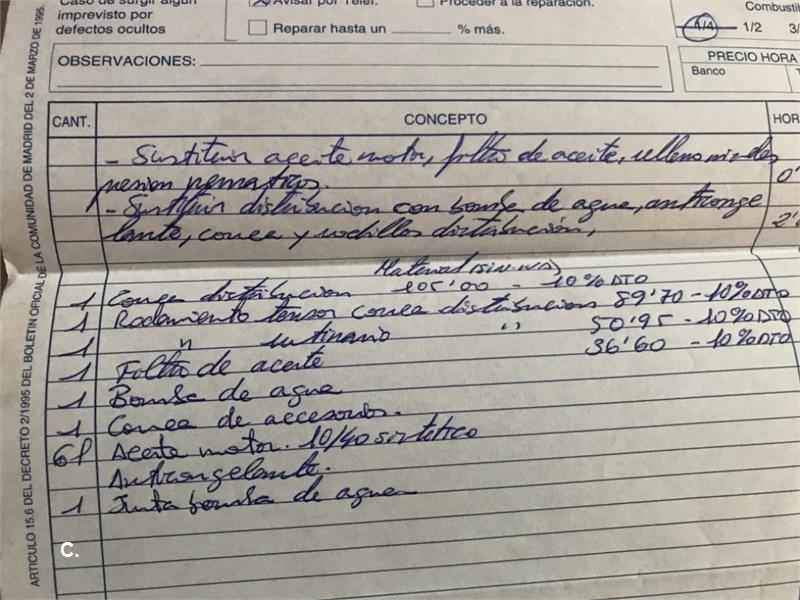 Caso de surgir algún
imprevisto por
defectos ocultos
Avisar por Telef.
Proceder a la reparación.
Reparar hasta un % más.
Combusti
4/4 1/2 3/
OBSERVACIONES:
PRECIO HORA
Banco
CANT. CONCEPTO HOR
- Sustituir aceite motor, filtro de aceite, relleno niveles
presion neumaticos. 0'
- Sustituir distribucion con bomba de agua, anticonge
lante, correa y rodillos distribución, 2'
Material (SIN IVA)
1 Correa distribucion 105'00 - 10% DTO
1 Rodamiento tensor correa distribucion 89'70 - 10% DTO
1 " " 50'95 - 10% DTO
1 Filtro de aceite 36'60 - 10% DTO
1 Bomba de agua
1 Correa de accesorios.
6l Aceite motor. 10/40 sintetico
Anticongelante.
1 Junta bomba de agua
C.
ARTICULO 15.6 DEL DECRETO 2/1995 DEL BOLETIN OFICIAL DE LA COMUNIDAD DE MADRID DEL 2 DE MARZO DE 1995.